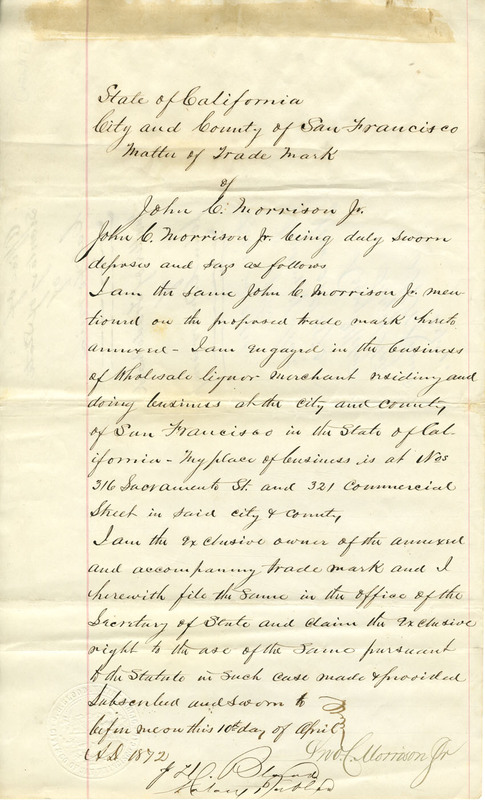 State of California
City and County of San Francisco
Matter of Trade Mark
of
John C. Morrison Jr.
John C. Morrison Jr. being duly sworn
deposes and says as follows
I am the same John C. Morrison Jr. men
tioned on the proposed trade mark hereto
annexed - I am engaged in the business
of Wholesale liquor merchant residing and
doing business at the city and county
of San Francisco in the State of Cal-
ifornia - My place of business is at Nos
316 Sacramento St. and 321 Commercial
Street in said city & county
I am the exclusive owner of the annexed
and accompany trade mark and I
herewith file the same in the office of the
Secretary of State and claim the exclusive
right to the use of the same pursuant
to the Statute in such case made & provided
Subscribed and sworn to
before me on this 10th day of April
A.D. 1872
Jno. C. Morrison Jr
Notary Public